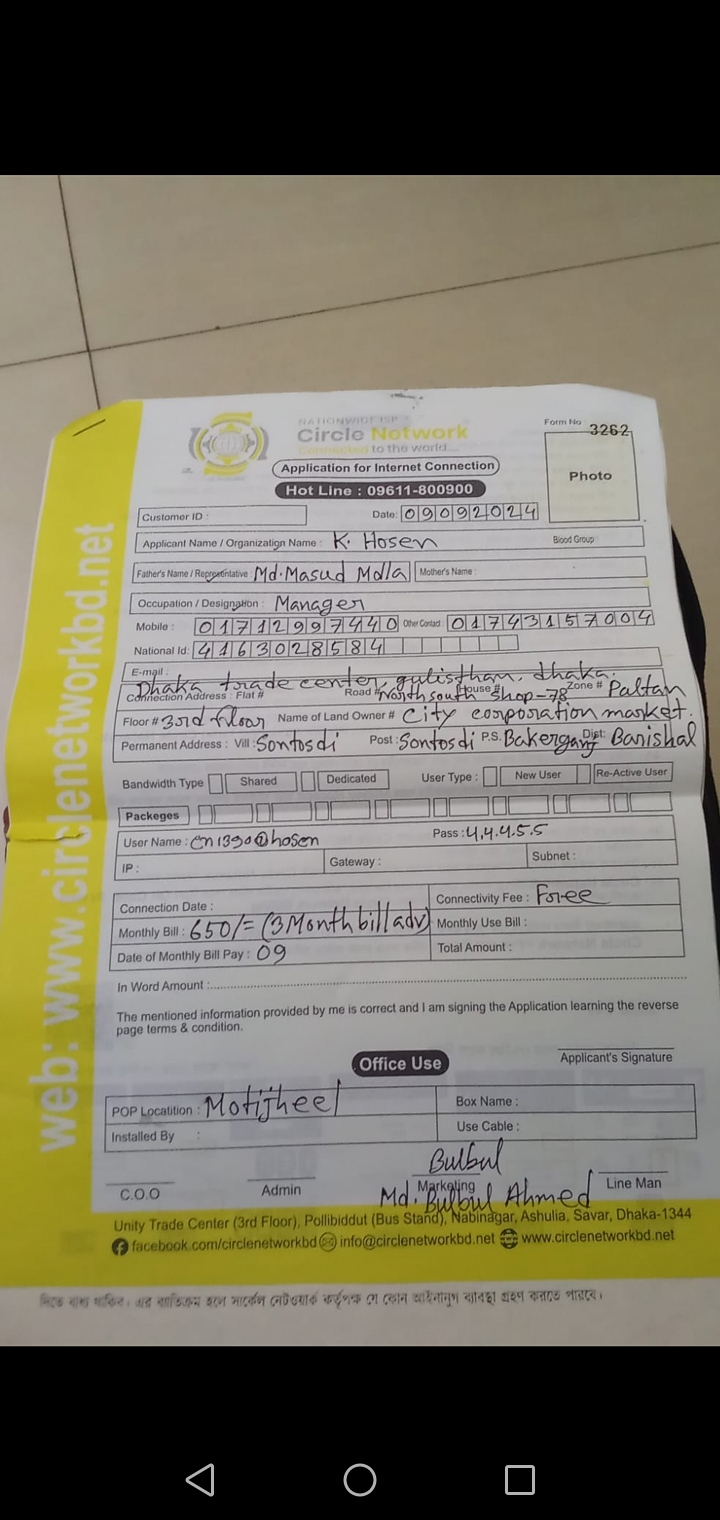 NATIONWIDE ISP
Circle Network
Connected to the world...
Form No 3262
Application for Internet Connection
Photo
Hot Line : 09611-800900
Customer ID :
Date: 09092024
Applicant Name / Organization Name : K. Hosen Blood Group
Father's Name / Representative : Md. Masud Molla Mother's Name :
Occupation / Designation : Manager
Mobile : 01712997440 Other Contact 01743157004
National Id: 4163028584
E-mail :
Dhaka trade center, gulisthan, dhaka.
Connection Address : Flat # Road # North south House # Shop-78 Zone # Paltan
Floor # 3rd floor Name of Land Owner # City corporation market.
Permanent Address : Vill : Sontosdi Post : Sontosdi P.S. Bakerganj Dist: Barishal
Bandwidth Type Shared Dedicated User Type : New User Re-Active User
Packeges
User Name : cn1390@hosen Pass : 4.4.4.5.5
IP : Gateway : Subnet :
Connection Date : Connectivity Fee : Free
Monthly Bill : 650/= (3 Month bill adv) Monthly Use Bill :
Date of Monthly Bill Pay : 09 Total Amount :
In Word Amount :
The mentioned information provided by me is correct and I am signing the Application learning the reverse
page terms & condition.
Office Use
Applicant's Signature
POP Locatition : Motijheel Box Name :
Installed By : Use Cable :
Bulbul
C.O.O Admin Marketing Line Man
Md. Bulbul Ahmed
Unity Trade Center (3rd Floor), Pollibiddut (Bus Stand), Nabinagar, Ashulia, Savar, Dhaka-1344
facebook.com/circlenetworkbd info@circlenetworkbd.net www.circlenetworkbd.net
web: www.circlenetworkbd.net
দিতে বাধ্য থাকিব। এর ব্যতিক্রম হলে সার্কেল নেটওয়ার্ক কর্তৃপক্ষ যে কোন আইনানুগ ব্যবস্থা গ্রহণ করতে পারবে।